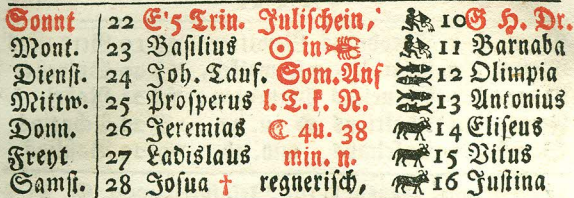 Sonnt 22 E'5 Trin. Julischein, 10 G H. Dr.
Mont. 23 Basilius ☉ in ♋ 11 Barnaba
Dienst. 24 Joh. Tauf. Som. Anf 12 Olimpia
Mittw. 25 Prosperus l. T. k. N. 13 Antonius
Donn. 26 Jeremias ☾ 4 u. 38 14 Eliseus
Freyt 27 Ladislaus min. n. 15 Vitus
Samst. 28 Josua † regnerisch, 16 Justina